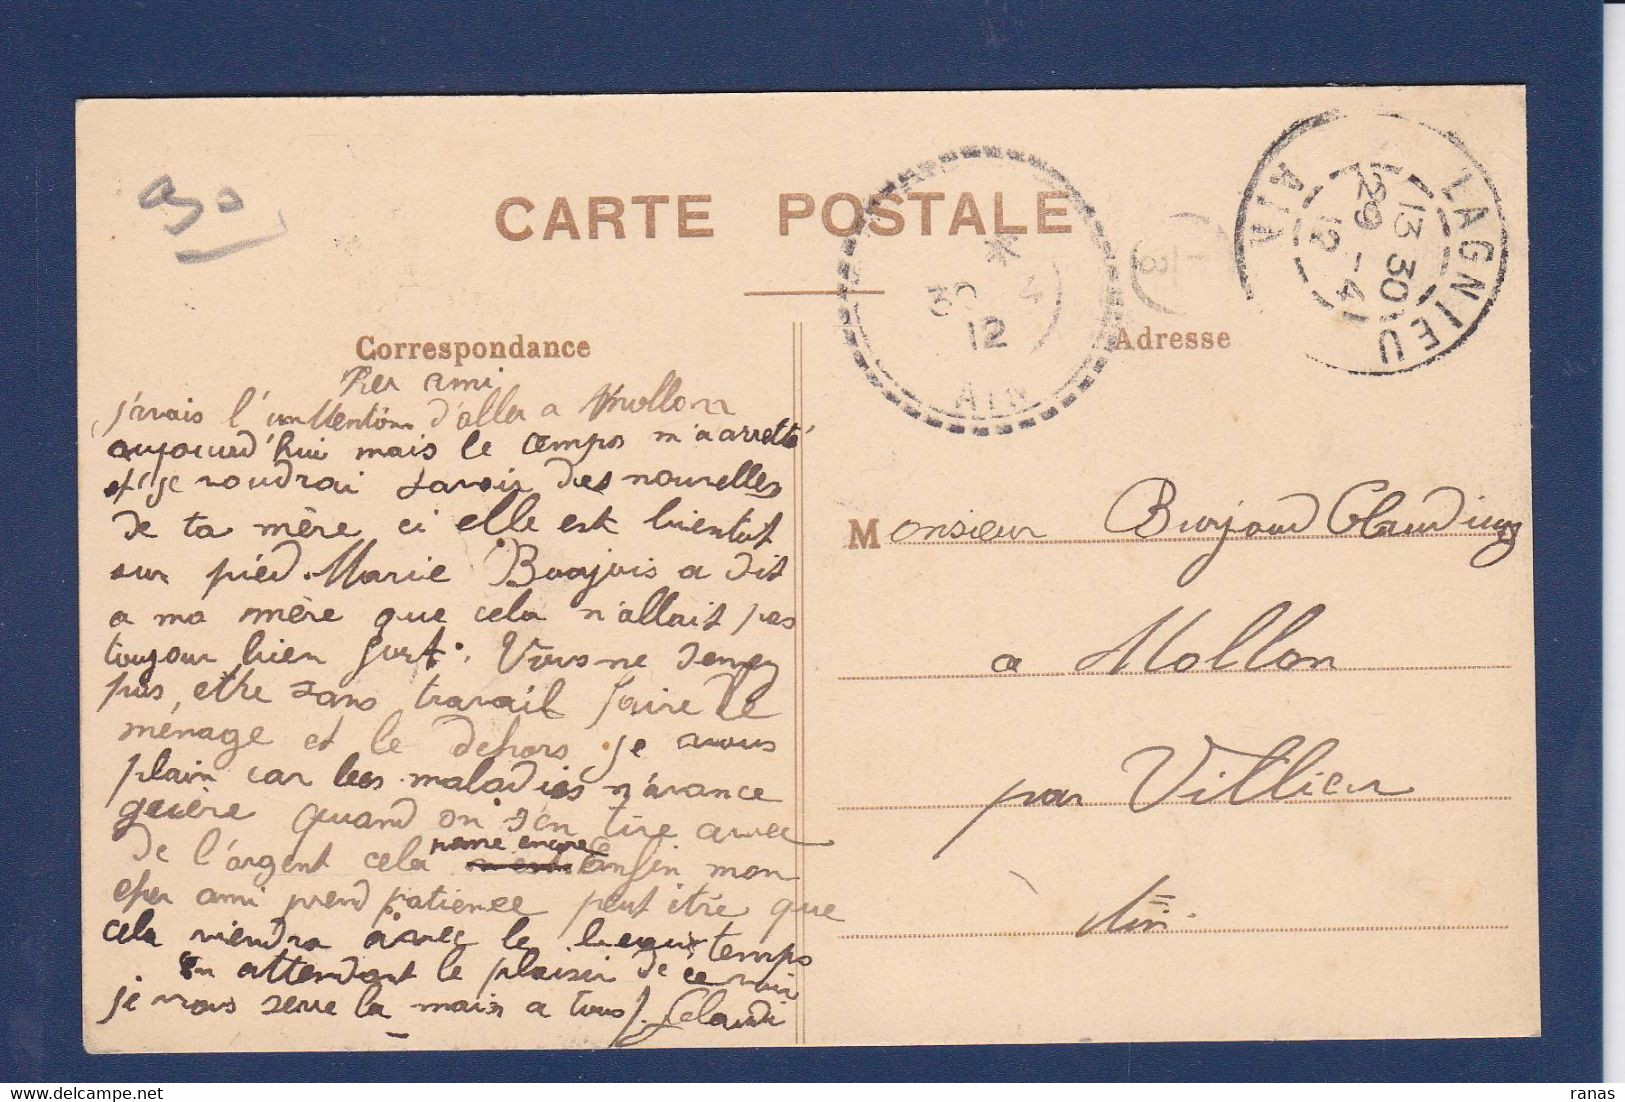 30
CARTE POSTALE
30 4
12
AIN
LAGNIEU
AIN
13 30
29 -4
12
Correspondance
Adresse
Cher ami
j'avais l'inttention d'aller a Mollon
aujourd'hui mais le temps m'a arretté
et je voudrai savoir des nouvelles
de ta mère ci elle est bientot
sur pied. Marie Bourjois a dit
a ma mère que cela n'allait pas
toujour bien fort. Vous ne devez
pas etre sans travail faire le
ménage et le dehors je vous
plain car les maladies n'avance
guère quand on s'en tire avec
de l'argent cela passe encore enfin mon
cher ami prend patience peut être que
cela viendra avec le beau temps
En attendant le plaisir de ce voir
je vous serre la main a tous J. Claudi
Monsieur Burjoud Claudius
a Mollon
par Villieu
Ain
ranas